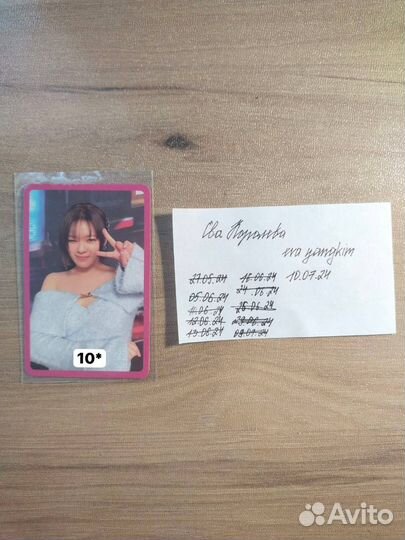 10*
Ева Королева
eva yangkim
27.05.24 16.06.24 10.07.24
05.06.24 24.06.24
11.06.24 26.06.24
12.06.24 29.06.24
13.06.24 09.07.24
Avito